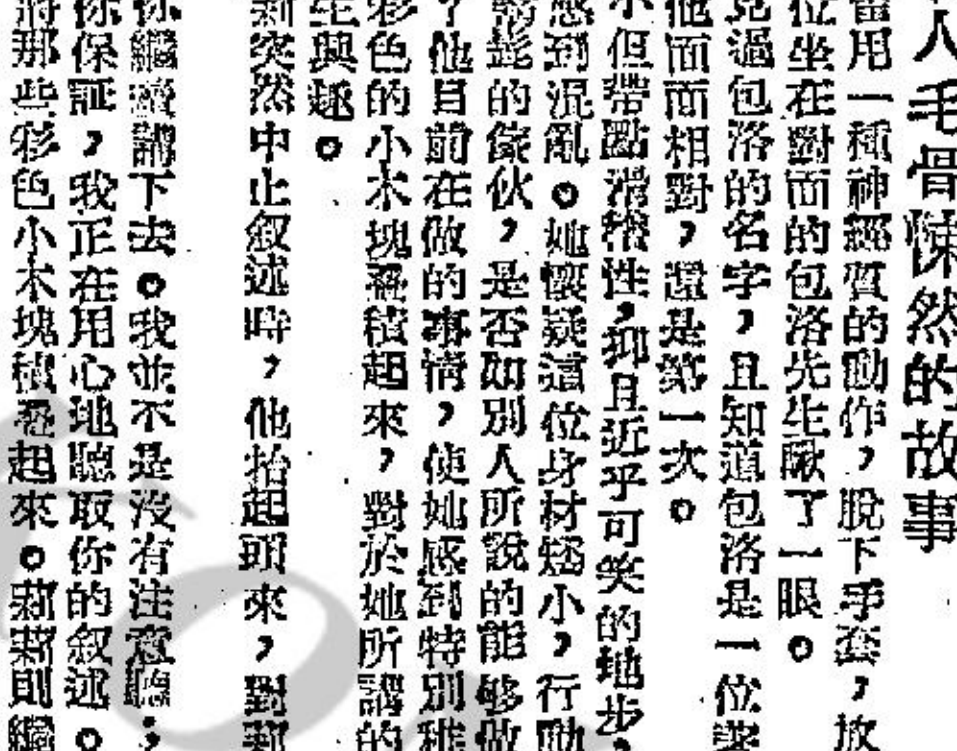 人毛骨悚然的故事
當用一種神經質的動作，脫下手套，放
位坐在對面的包洛先生瞅了一眼。
見過包洛的名字，且知道包洛是一位
他面面相對，還是第一次。
小但帶點滑稽性，抑且近乎可笑的地步，
感到混亂。她懷疑這位身材矮小，行動
的傢伙，是否如別人所說的能够做
了他目前在做的事情，使她感到特別
彩色的小木塊叠積起來，對於她所講的
生興趣。
莉突然中止叙述時，他抬起頭來，對莉
你繼續講下去。我並不是沒有注意聽；
你保証，我正在用心地聽取你的叙述。
將那些彩色小木塊積叠起來。莉莉則繼